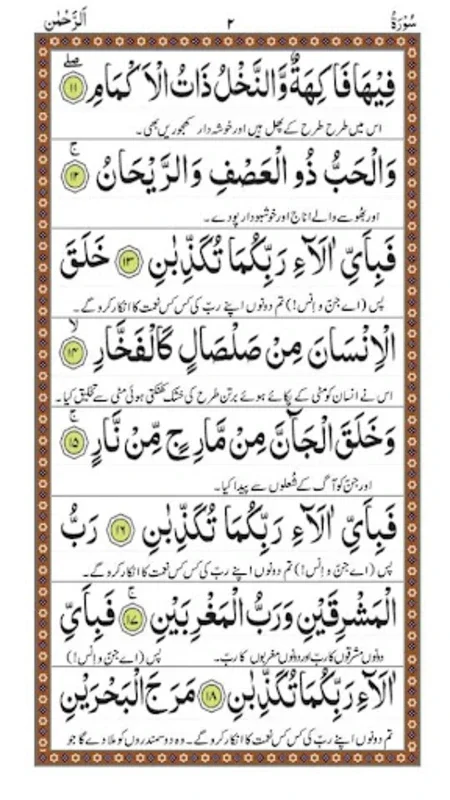 سُوْرَةُ ٢ اَلرَّحْمٰن
فِيْهَا فَاكِهَةٌ وَّالنَّخْلُ ذَاتُ الْاَكْمَامِ ۱۱ صلے
اس میں طرح طرح کے پھل ہیں اور خوشہ دار کھجوریں بھی۔
وَالْحَبُّ ذُو الْعَصْفِ وَالرَّيْحَانُ ۱۲ ج
اور بھُوسے والے اناج اور خوشبودار پودے۔
فَبِاَيِّ اٰلَآءِ رَبِّكُمَا تُكَذِّبٰنِ ۱۳ خَلَقَ
پس (اے جنّ و اِنس!) تم دونوں اپنے ربّ کی کس کس نعمت کا انکار کرو گے۔
الْاِنْسَانَ مِنْ صَلْصَالٍ كَالْفَخَّارِ ۱۴ لا
اس نے انسان کو مٹی کے پکائے ہوئے برتن کی طرح کی خشک کھنکتی ہوئی مٹی سے تخلیق کیا۔
وَخَلَقَ الْجَآنَّ مِنْ مَّارِجٍ مِّنْ نَّارٍ ۱۵ ج
اور جنّ کو آگ کے شعلوں سے پیدا کیا۔
فَبِاَيِّ اٰلَآءِ رَبِّكُمَا تُكَذِّبٰنِ ۱۶ رَبُّ
پس (اے جنّ و اِنس!) تم دونوں اپنے ربّ کی کس کس نعمت کا انکار کرو گے۔
الْمَشْرِقَيْنِ وَرَبُّ الْمَغْرِبَيْنِ ۱۷ ج فَبِاَيِّ
دونوں مشرقوں کا ربّ اور دونوں مغربوں کا ربّ۔ پس (اے جنّ و اِنس!)
اٰلَآءِ رَبِّكُمَا تُكَذِّبٰنِ ۱۸ مَرَجَ الْبَحْرَيْنِ
تم دونوں اپنے ربّ کی کس کس نعمت کا انکار کرو گے۔ وہ دو سمندروں کو ملا دے گا جو